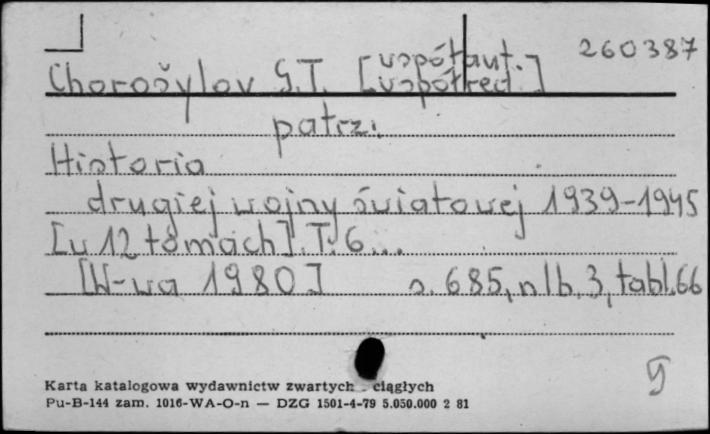 260387
[współaut.
Chorošylov G.T. [współred.]
patrz:
Historia
drugiej wojny światowej 1939-1945
[w 12 tomach]. T. 6...
[W-wa 1980] s. 685, nlb. 3, tabl. 66
Karta katalogowa wydawnictw zwartych - ciągłych
Pu-B-144 zam. 1016-WA-O-n — DZG 1501-4-79 5.050.000 2 81